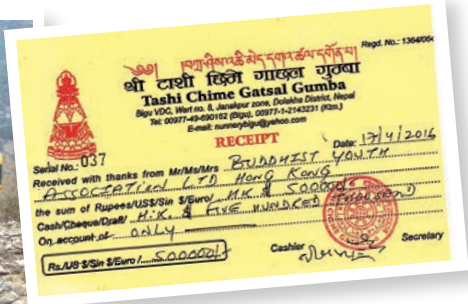 Regd. No.: 1364/064
श्री टाशी छिमे गाछल गुम्बा
Tashi Chime Gatsal Gumba
Bigu VDC, Wart no. 8, Janakpur zone, Dolakha District, Nepal
Tel: 00977-49-690162 (Bigu), 00977-1-2143231 (Ktm.)
E-mail: nunnerybigu@yahoo.com
RECEIPT
Serial No.: 037
Date: 17/4/2016
Received with thanks from Mr/Ms/Mrs BUDDHIST YOUTH
ASSOCIATION LTD HONG KONG
the sum of Rupees/US$/Sin $/Euro/ HK $ 500000/
Cash/Cheque/Draft/ H.K. $ FIVE HUNDRED THOUSAND
On account of ONLY
Rs./US $/Sin $/Euro/ 500000/
Cashier
Secretary